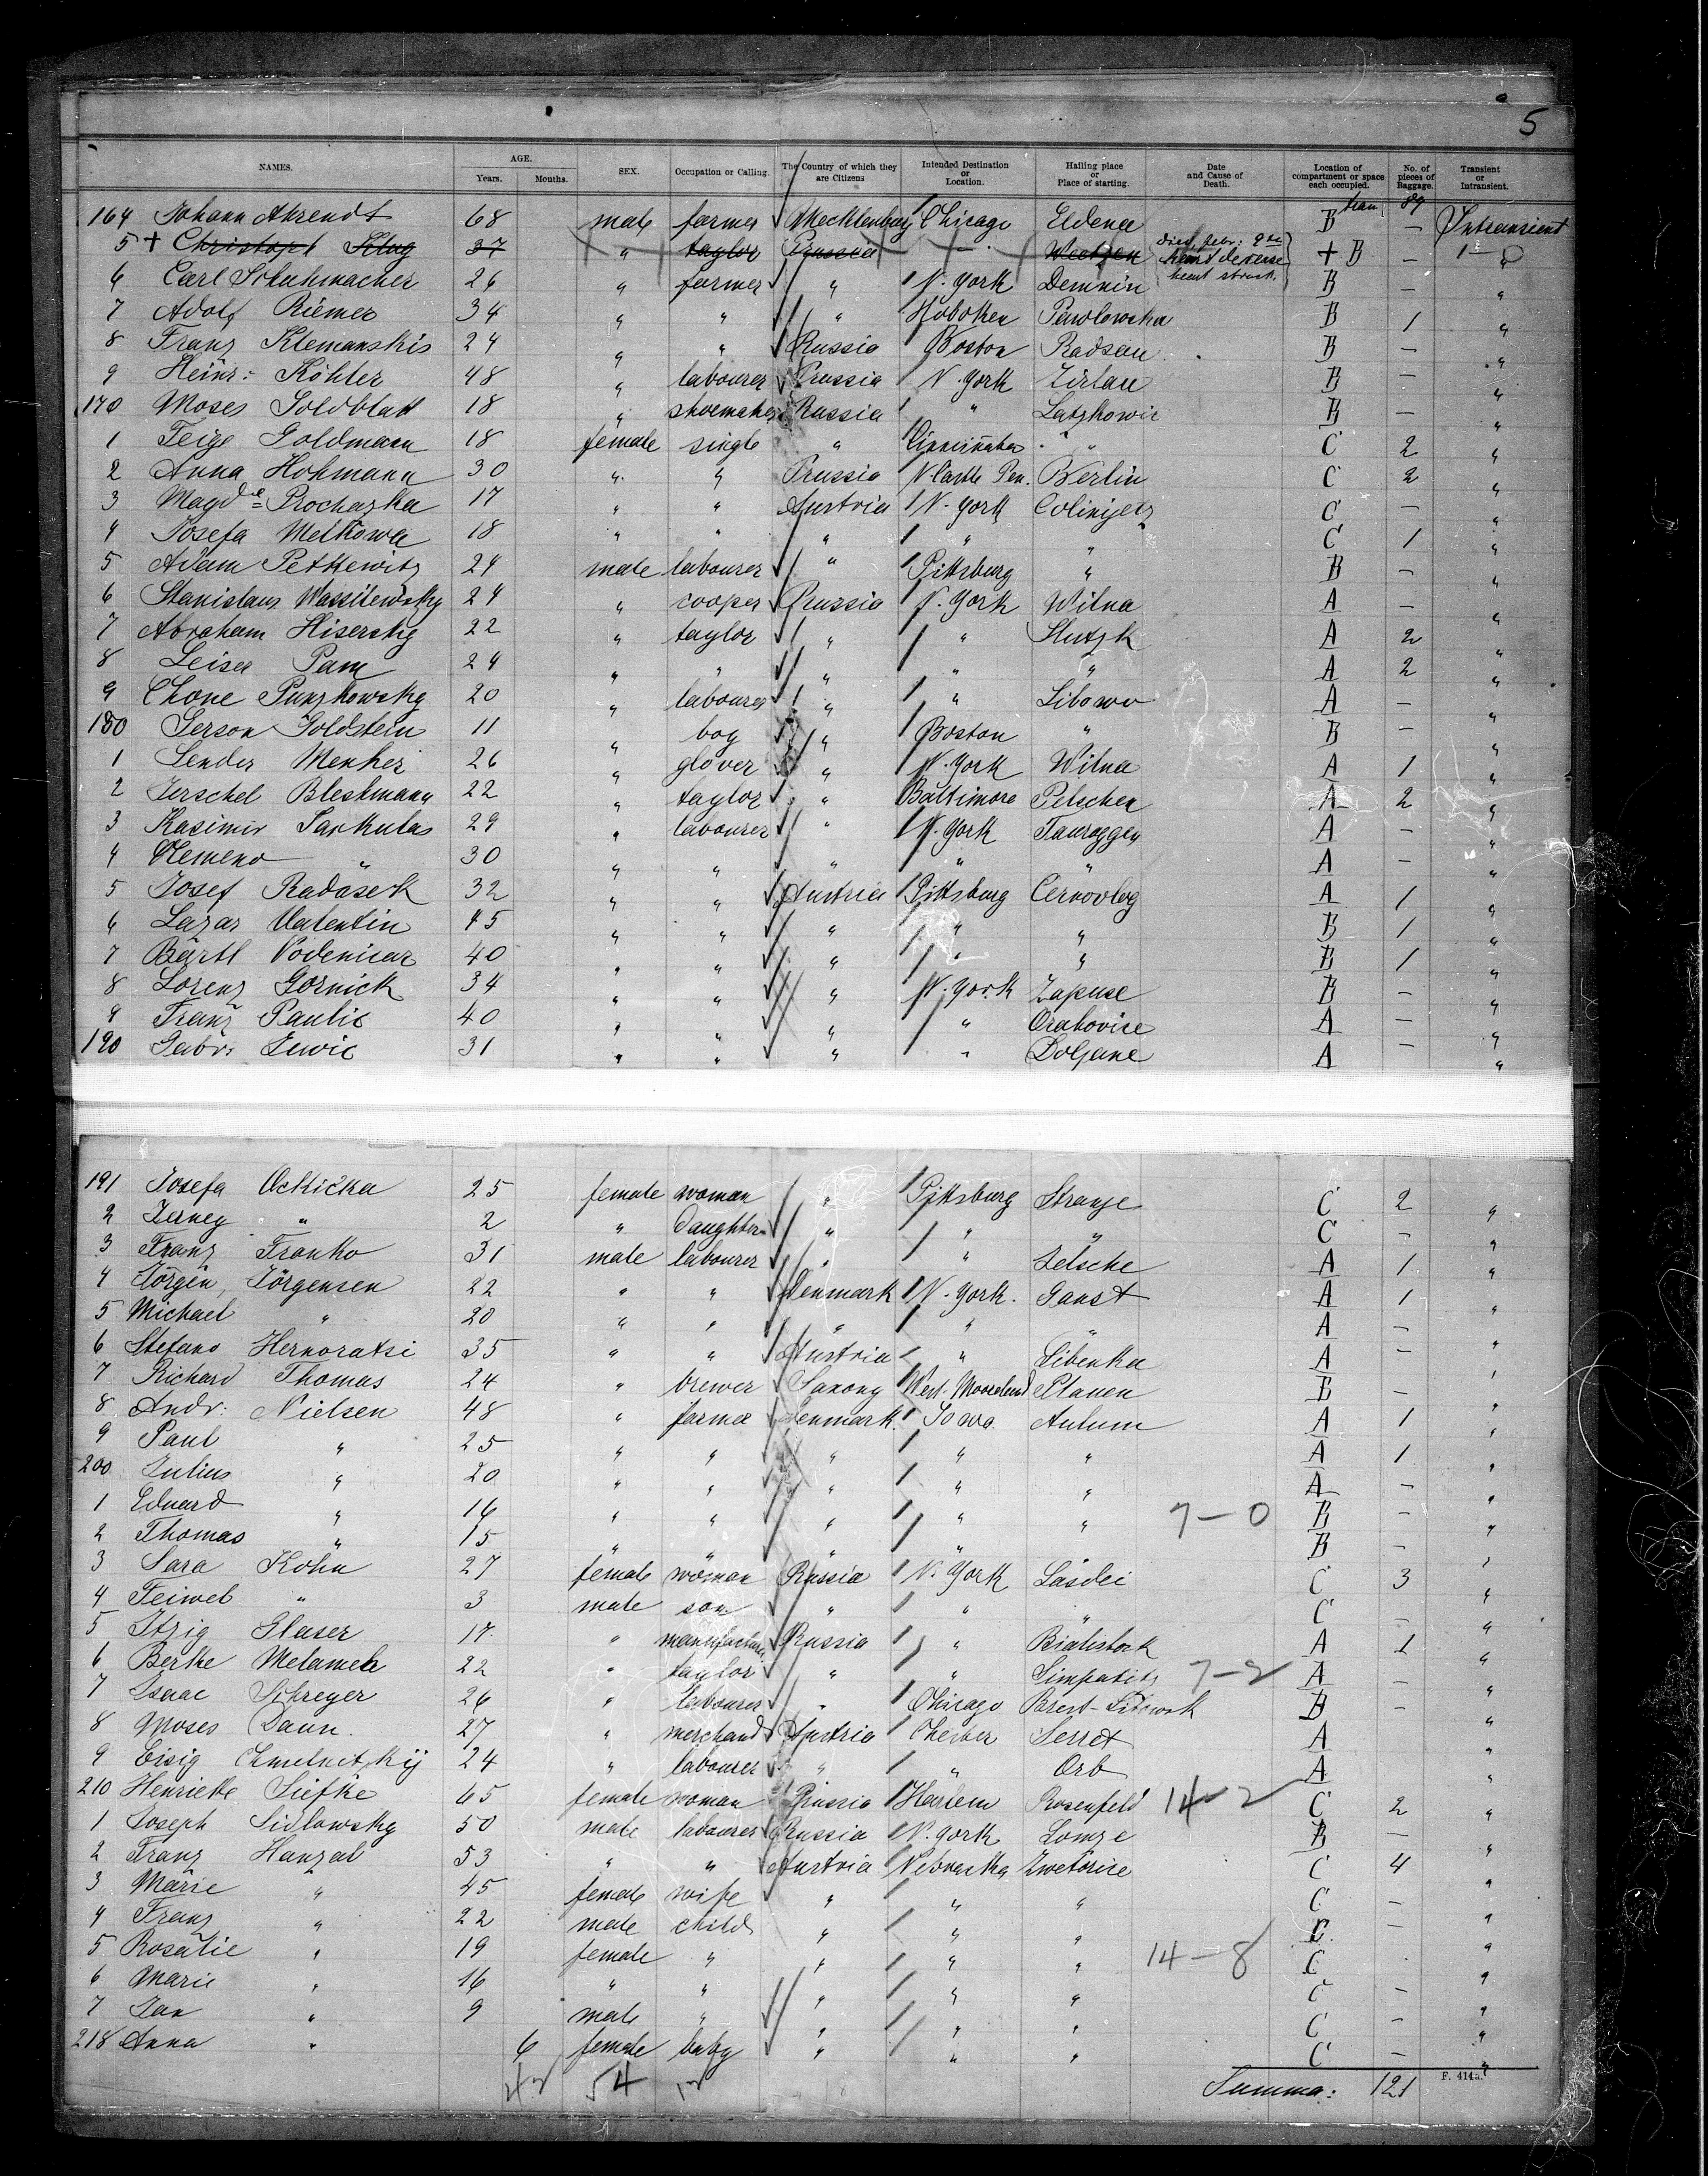 5
NAMES. AGE. Years. Months. SEX. Occupation or Calling. The Country of which they are Citizens Intended Destination or Location. Hailing place or Place of starting. Date and Cause of Death. Location of compartment or space each occupied. No. of pieces of Baggage. Transient or Intransient.
89
164 Johann Ahrendt 68 male farmer Mecklenburg Chicago Eldena B — Intransient
5 + Christoph Klug 37 " taylor Prussia — Died febr: 9th heart desease heart struck. + B — "
6 Carl Schuhmacher 26 " farmer " N. York Demmin B — "
7 Adolf Riemer 34 " " " Hoboken Pawlowska B 1 "
8 Franz Klemanskis 24 " " Russia Boston Radsen B — "
9 Heinr: Köhler 48 " labourer Prussia N. York Zirlau B — "
170 Moses Goldblatt 18 " shoemaker Russia " Latzkowir B — "
1 Feige Goldmann 18 female single " " C 2 "
2 Anna Hohmann 30 " " Prussia N Castle Pen. Berlin C 2 "
3 Magde Prochazka 17 " " Austria N. York Colinjetz C — "
4 Josefa Melkowa 18 " " " " " C 1 "
5 Adam Petkewitz 24 male labourer " Pittsburg " B — "
6 Stanislaus Wassilewsky 24 " cooper Russia N. York Wilna A — "
7 Abraham Hisersky 22 " taylor " " Slutzk A 2 "
8 Leiser Pam 24 " " " " " A 2 "
9 Chone Punzkowsky 20 " labourer " " Libowo A — "
180 Gerson Goldstein 11 " boy " Boston " B — "
1 Sender Menker 26 " glover " N. York Wilna A 1 "
2 Herschel Bleshmann 22 " taylor " Baltimore Pelschen A 2 "
3 Kasimir Sarkulas 29 " labourer " N. York Tauroggen A — "
4 Klemens " 30 " " " " " A — "
5 Josef Radosek 32 " " Austria Pittsburg Cernovlog A 1 "
6 Lazar Valentin 45 " " " " " B 1 "
7 Bartl Vodenicar 40 " " " " " B 1 "
8 Lorenz Gornick 34 " " " N. York Zapuse B — "
9 Franz Paulic 40 " " " " Orahovice A — "
190 Gabr: Jewic 31 " " " " Doljane A — "
191 Josefa Ockicka 25 female woman " Pittsburg Stranje C 2 "
2 Jerney " 2 " Daughter " " " C — "
3 Franz Franko 31 male labourer " " Zelsche A 1 "
4 Jörgen Jörgensen 22 " " Denmark N. York. Ganst A 1 "
5 Michael " 20 " " " " " A — "
6 Stefano Hernoratsi 35 " " Austria " Sibenka A — "
7 Richard Thomas 24 " brewer Saxony West-Mooreland Plauen B — "
8 Andr: Nielsen 48 " farmer Denmark Iowa Aulum A 1 "
9 Paul " 25 " " " " " A 1 "
200 Julius " 20 " " " " " A — "
1 Eduard " 16 " " " " " 7–0 B — "
2 Thomas " 15 " " " " " B — "
3 Sara Kohn 27 female woman Russia N. York Lasdei C 3 "
4 Feiwel " 3 male son " " " C — "
5 Itzig Glaser 17 " manufacturer Russia " Bialistock A 1 "
6 Berke Melamele 22 " taylor " " 7–2 A — "
7 Isaac Schreyer 26 " labourer " Chicago Brest-Litowsk B — "
8 Moses Daun. 27 " merchand Austria Sereth A "
9 Eisig Chmelnitzkij 24 " labourer " " Orb A "
210 Henriette Siefke 65 female woman Prussia Harlem Rosenfeld 14–2 C 2 "
1 Joseph Sidlowsky 50 male labourer Russia N. York Lomze B — "
2 Franz Hanzal 53 " " Austria Nebraska Zwetorice C 4 "
3 Marie " 45 female wife " " " C — "
4 Franz " 22 male child " " " C — "
5 Rosalie " 19 female " " " " 14–8 C "
6 Marie " 16 " " " " " C — "
7 Jan " 9 male " " " " C — "
218 Anna " 6 female baby " " " C — "
54
Summa: 121
F. 414a.